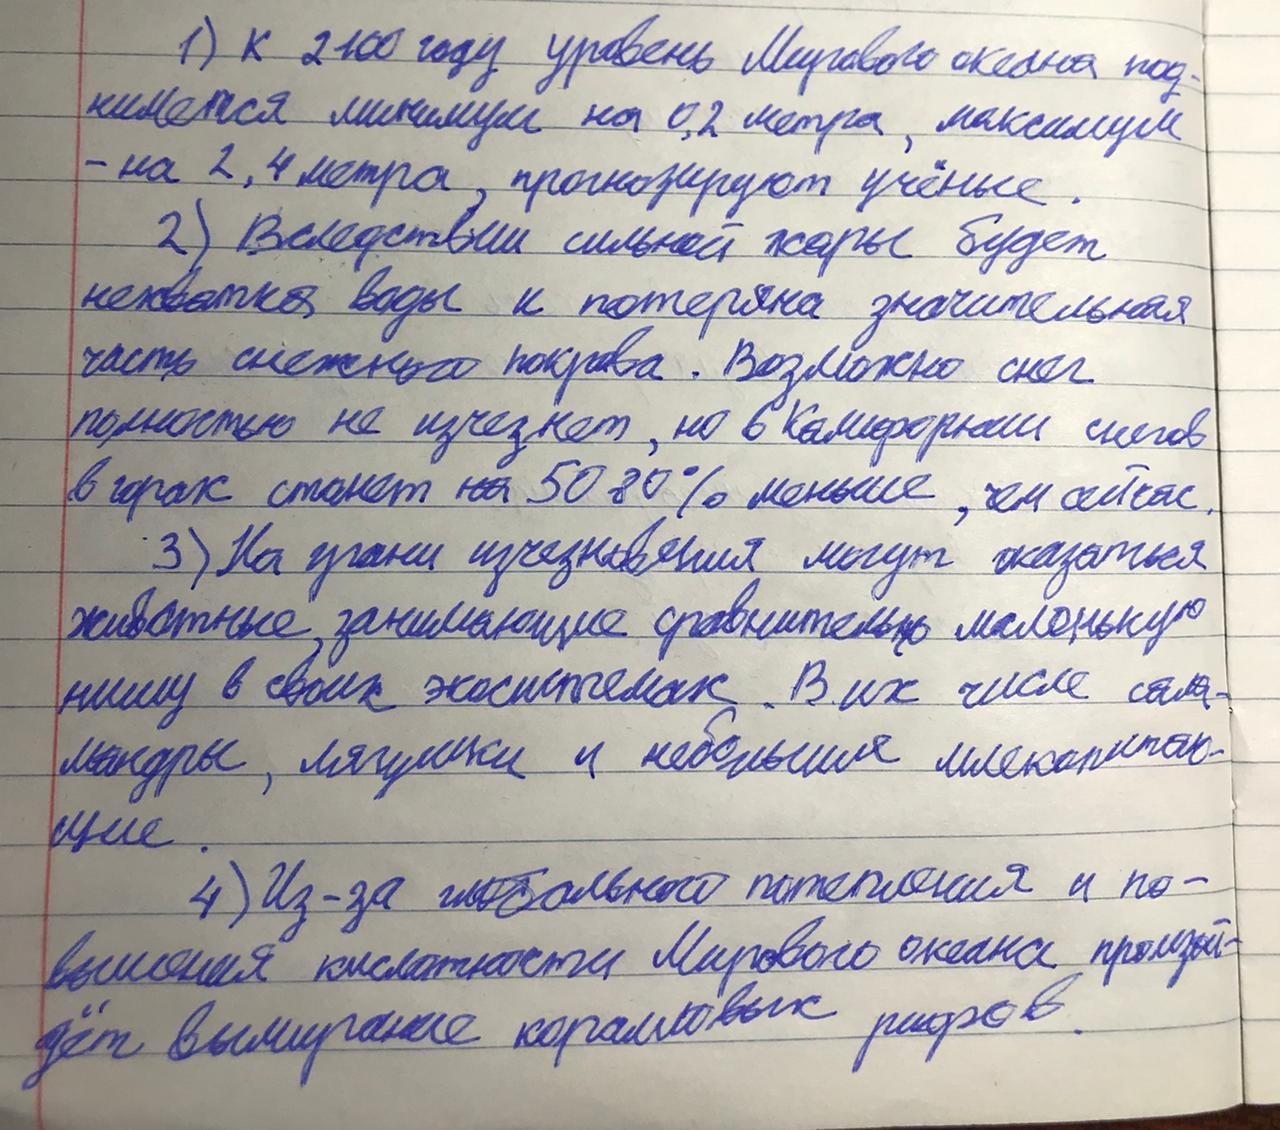 1) К 2100 году уровень Мирового океана под-
нимется минимум на 0,2 метра, максимум
- на 2,4 метра, прогнозируют учёные.
2) Вследствии сильной жары будет
нехватка воды и потеряна значительная
часть снежного покрова. Возможно снег
полностью не изчезнет, но в Калифорнии снегов
в горах станет на 50 80% меньше, чем сейчас.
3) На грани изчезновения могут оказаться
животные, занимающие сравнительно маленькую
нишу в своих экосистемах. В их числе сала-
мандры, лягушки и небольшие млекопитаю-
щие.
4) Из-за глобального потепления и по-
вышения кислотности Мирового океана произой-
дёт вымирание коралловых рифов.